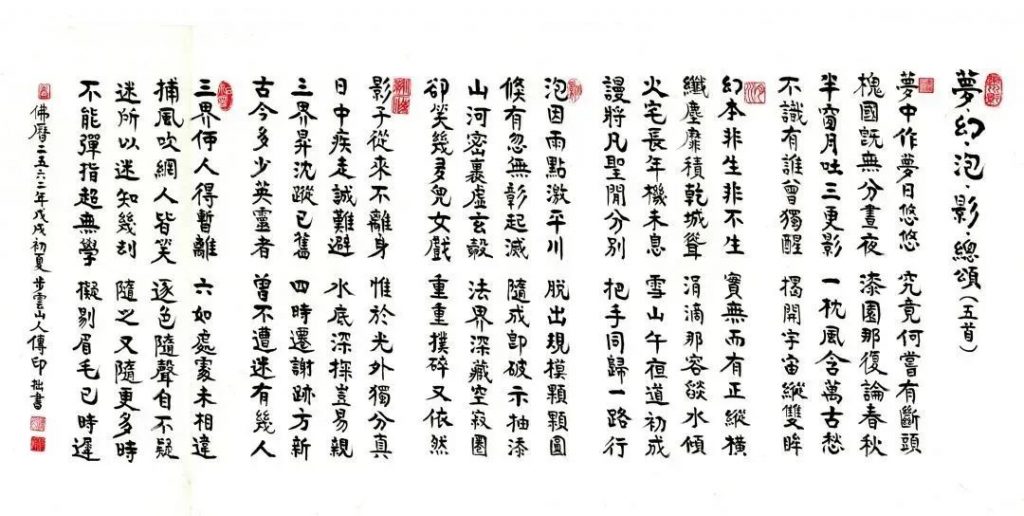 夢·幻·泡·影·總頌(五首)
夢中作夢日悠悠 究竟何嘗有斷頭
槐國既無分晝夜 漆園那復論春秋
半窗月吐三更影 一枕風含萬古愁
不識有誰曾獨醒 揭開宇宙縱雙眸
幻本非生非不生 實無而有正縱橫
纖塵靡積乾城聳 涓滴那容燄水傾
火宅長年機未息 雪山午夜道初成
謾將凡聖閒分別 把手同歸一路行
泡因雨點激平川 脫出規模顆顆圓
倏有忽無彰起滅 隨成即破示抽添
山河密裏虛玄殼 法界深藏空寂圈
卻笑幾多兒女戲 重重撲碎又依然
影子從來不離身 惟於光外獨分真
日中疾走誠難避 水底深探豈易親
三界昇沈蹤已舊 四時遷謝跡方新
古今多少英靈者 曾不遭迷有幾人
三界何人得暫離 六如處處未相違
捕風吹網人皆笑 逐色隨聲自不疑
迷所以迷知幾劫 隨之又隨更多時
不能彈指超無學 擬剔眉毛已時遲
佛曆二五六二年戊戌初夏 步雲山人傳印拙書